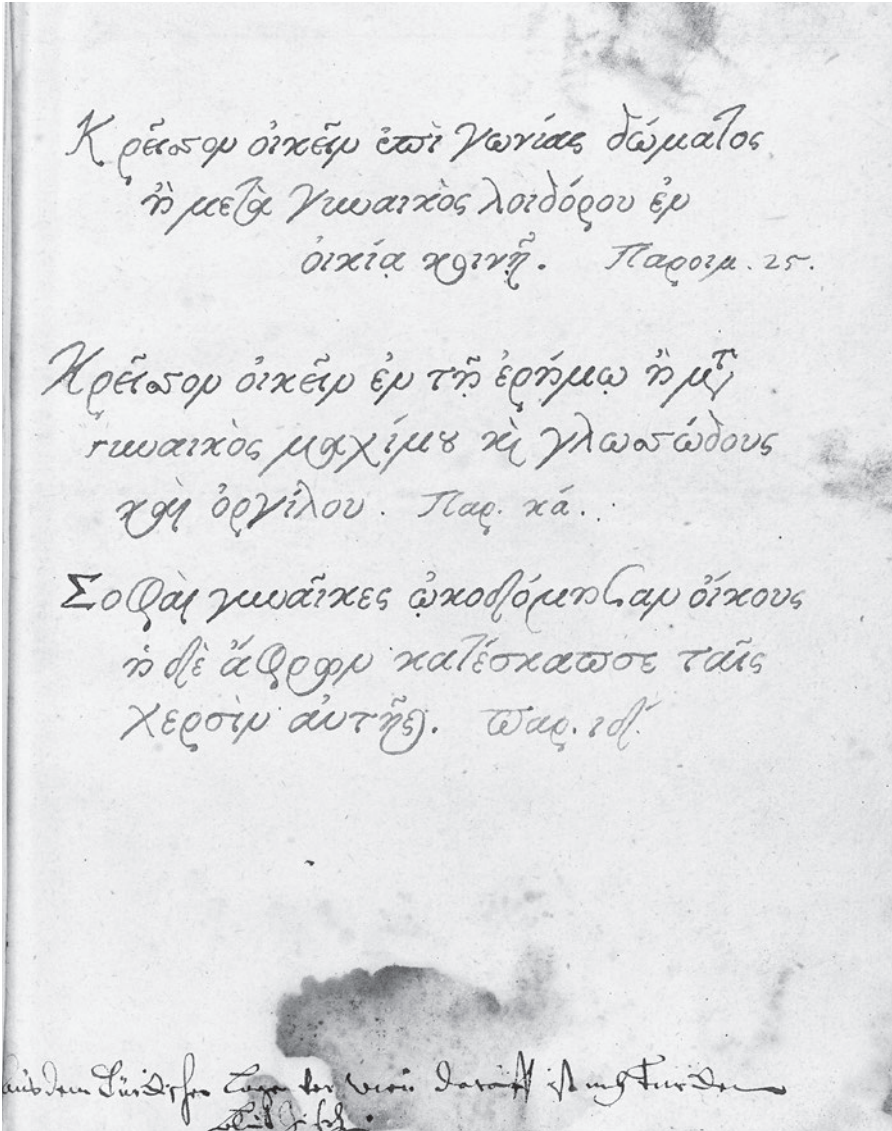 Κρεῖσσον οἰκεῖν ἐπὶ γωνίας δώματος
ἢ μετὰ γυναικὸς λοιδόρου ἐν
οἰκίᾳ κοινῇ. Παροιμ. 25.
Κρεῖσσον οἰκεῖν ἐν τῇ ἐρήμῳ ἢ μτ
γυναικὸς μαχίμου καὶ γλωσσώδους
καὶ ὀργίλου. Παρ. κά.
Σοφαὶ γυναῖκες ᾠκοδόμησαν οἴκους
ἡ δὲ ἄφρων κατέσκαπσε ταῖς
χερσὶν αὐτῆς. Παρ. ιδ.
aus dem Türckischen Lager vor Wien darauff ist